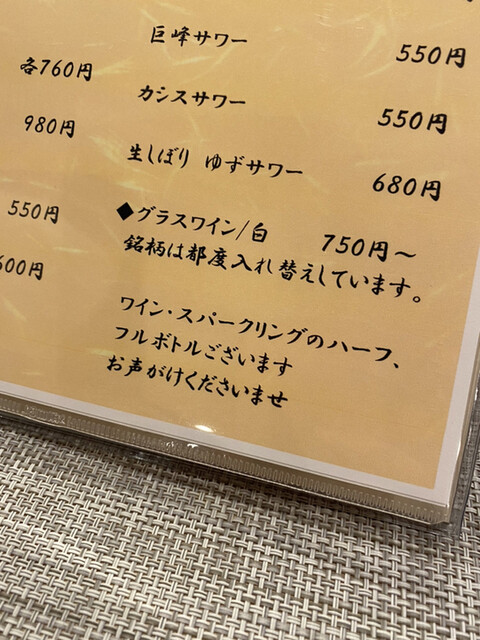 各760円
980円
550円
600円
巨峰サワー 550円
カシスサワー 550円
生しぼり ゆずサワー 680円
◆グラスワイン/白 750円〜
銘柄は都度入れ替えしています。
ワイン・スパークリングのハーフ、
フルボトルございます
お声がけくださいませ